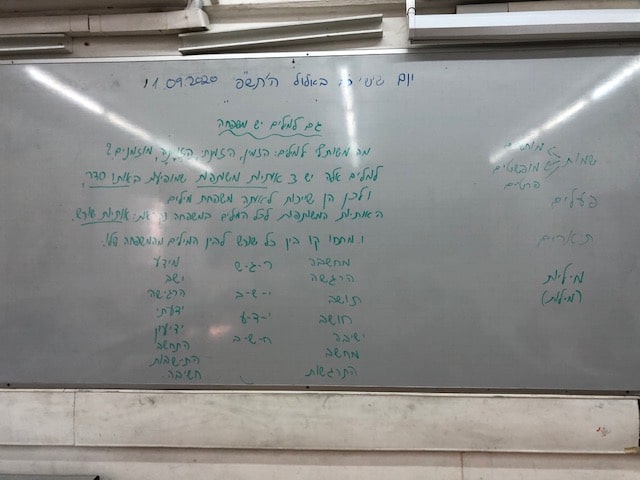 יום שישי כ"ב באלול ה'תש"פ 11.09.2020
גם למלים יש משפחה
מה משותף למלים: הזמין, הזמנת, מוזמנים?
למלים אלה יש 3 אותיות משותפות שמופיעות באותו סדר,
ולכן הן שייכות לאותה משפחת מילים
האותיות המשותפות לכל המלים במשפחה נקראות: אותיות שורש.
1. מתחו קו בין כל שורש לבין המילים מהמשפחה שלו.
מחשבה ר-ג-ש מידע
הרגשה ישב
תושב י-ש-ב הרגישה
חושב י-ד-ע ידעתי
ישיבה ח-ש-ב ידיעון
מחשב התחשב
התרגשות התישבות
חשיבה
שמות
מוחשיים
מופשטים
פרטים
פעלים
תארים
מיליות
(מילות)